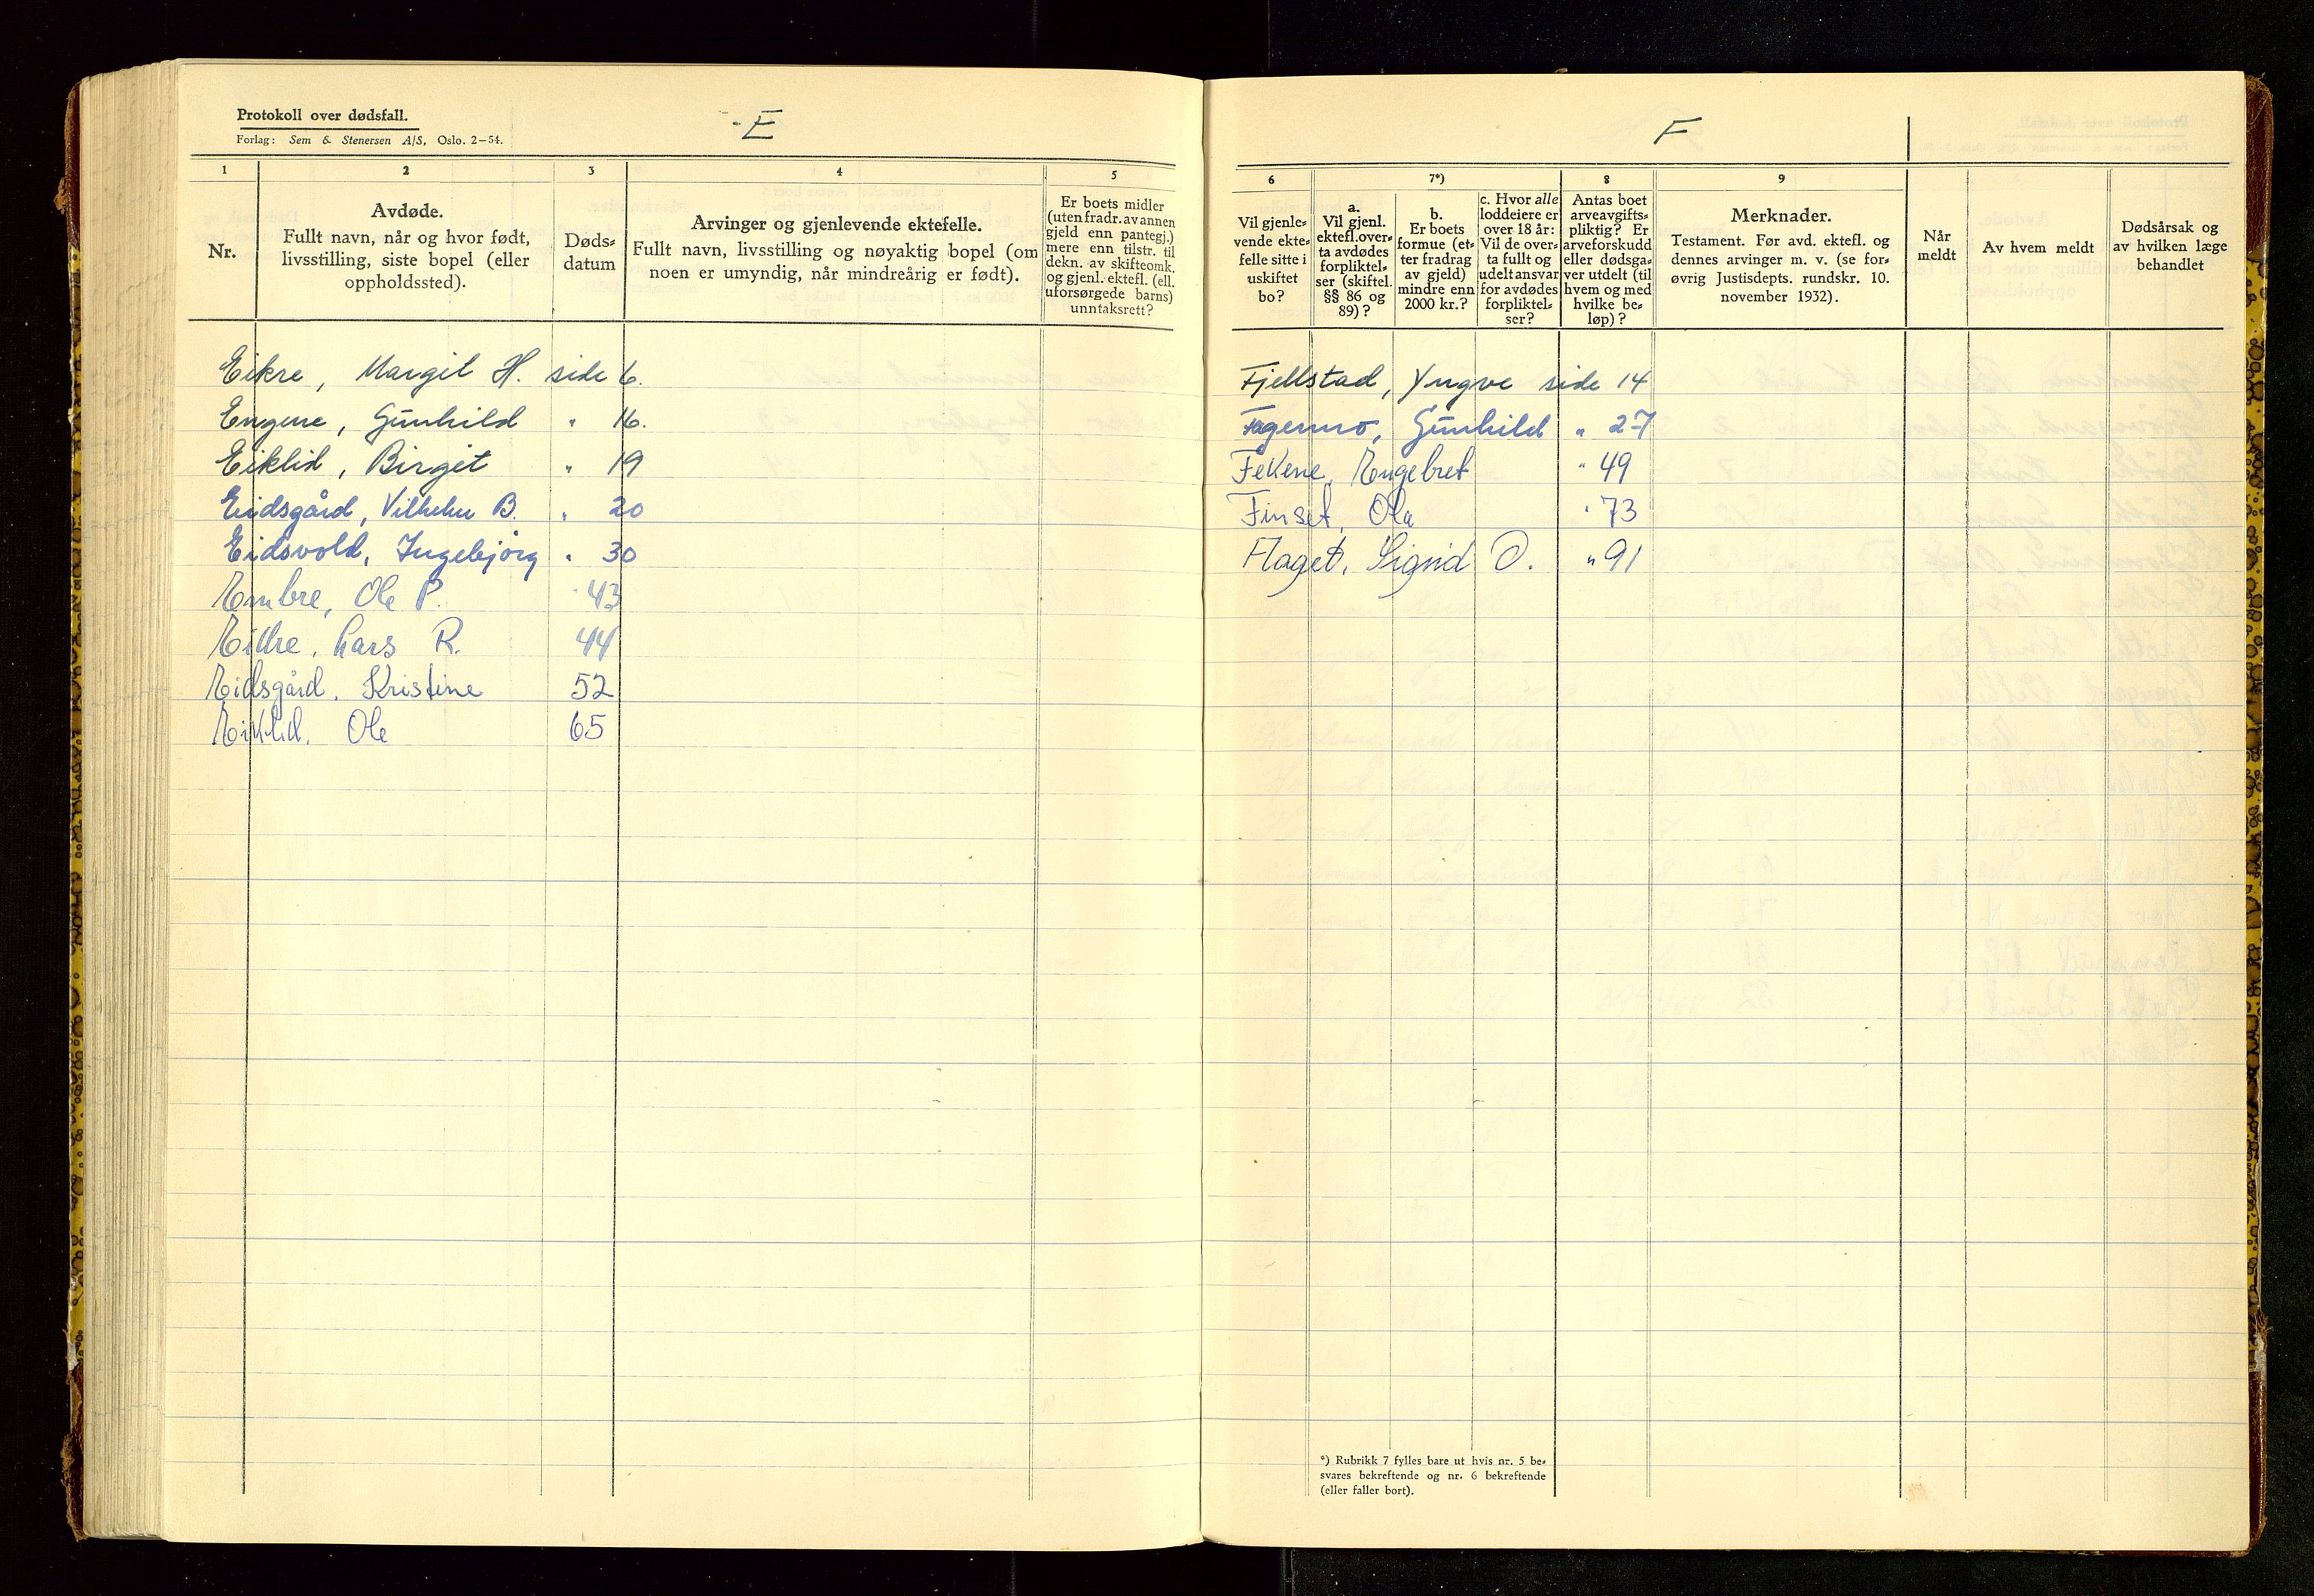 Protokoll over dødsfall.
Forlag: Sem & Stenersen A/S, Oslo. 2-54.
E
1
2
3
4
5
Nr.
Avdøde.
Fullt navn, når og hvor født,
livsstilling, siste bopel (eller
oppholdssted).
Døds-
datum
Arvinger og gjenlevende ektefelle.
Fullt navn, livsstilling og nøyaktig bopel (om
noen er umyndig, når mindreårig er født).
Er boets midler
(uten fradr. av annen
gjeld enn pantegj.)
mere enn tilstr. til
dekn. av skifteomk.
og gjenl. ektefl. (ell.
uforsørgede barns)
unntaksrett?
Eikre, Margit H. side 6.
Engene, Gunhild " 16.
Eiklid, Birgit " 19
Eidsgård, Vilhelm B. " 20
Eidsvold, Ingebjörg " 30
Embre, Ole P. " 43
Lars R. 44
Eidsgård, Kristine 52
Eiklid, Ole 65
F
6
7*)
8
9
Vil gjenle-
vende ekte-
felle sitte i
uskiftet
bo?
a.
Vil gjenl.
ektefl. over-
ta avdødes
forpliktel-
ser (skiftel.
§§ 86 og
89)?
b.
Er boets
formue (et-
ter fradrag
av gjeld)
mindre enn
2000 kr.?
c. Hvor alle
loddeiere er
over 18 år:
Vil de over-
ta fullt og
udelt ansvar
for avdødes
forpliktel-
ser?
Antas boet
arveavgifts-
pliktig? Er
arveforskudd
eller dødsga-
ver utdelt (til
hvem og med
hvilke be-
løp)?
Merknader.
Testament. Før avd. ektefl. og
dennes arvinger m. v. (se for-
øvrig Justisdepts. rundskr. 10.
november 1932).
Når
meldt
Av hvem meldt
Dødsårsak og
av hvilken læge
behandlet
Fjellstad, Yngve side 14
Fagermo, Gunhild " 27
Fekene, Engebret " 49
Finset, Ola " 73
Flaget, Sigrid O. " 91
*) Rubrikk 7 fylles bare ut hvis nr. 5 be-
svares bekreftende og nr. 6 bekreftende
(eller faller bort).